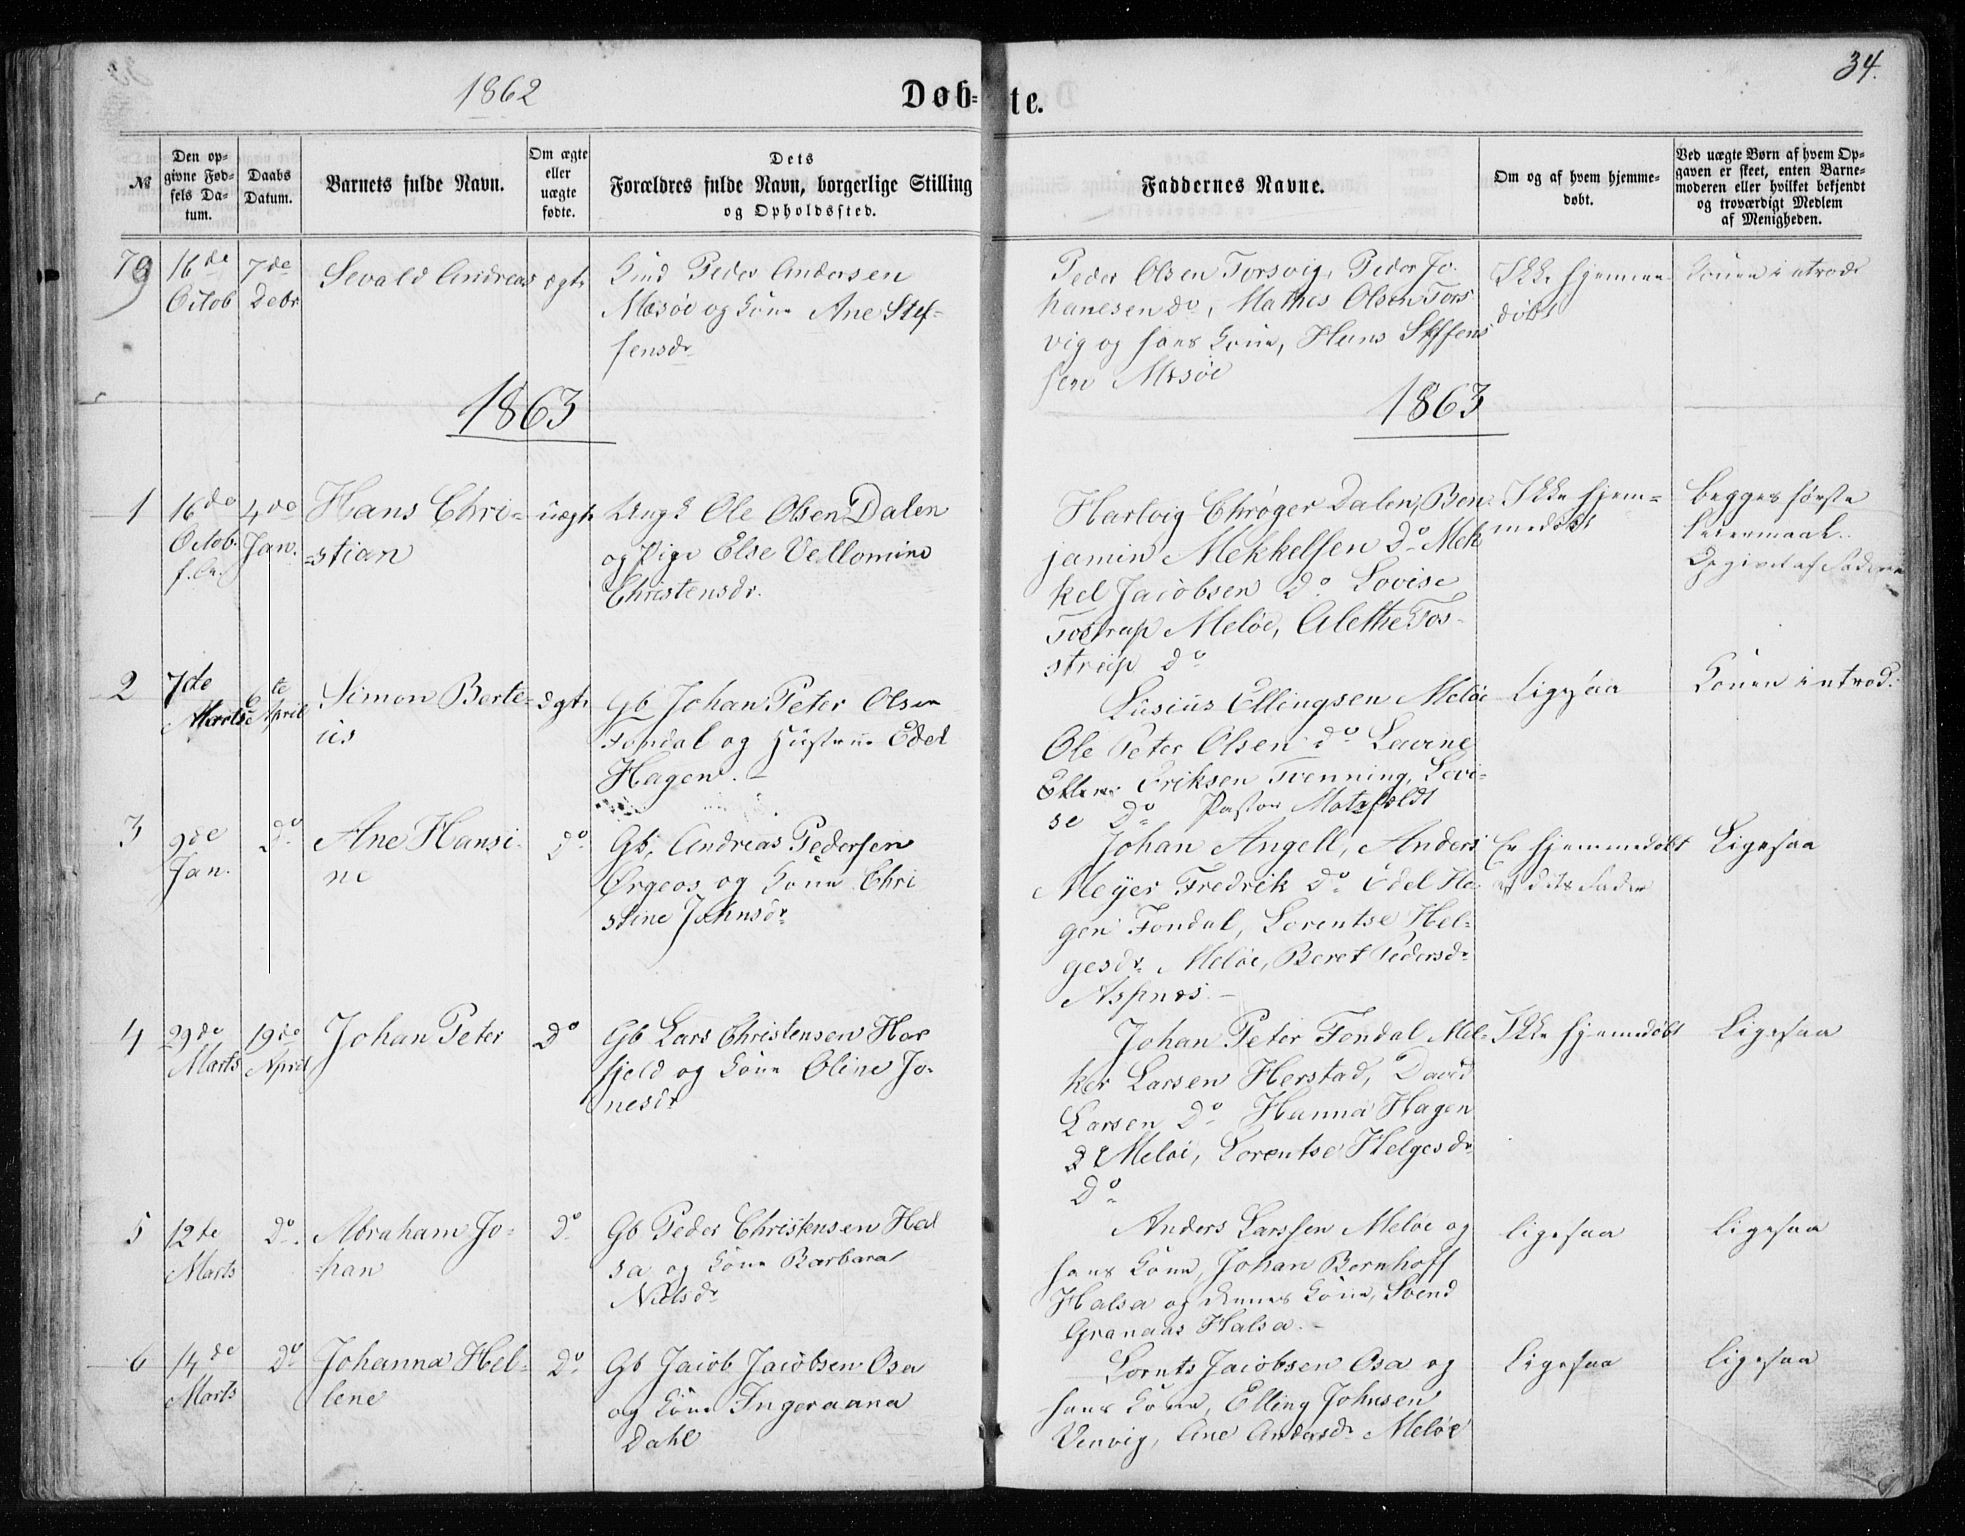 34.
1862
Døb=
te.
№
Den op=
givne Fød=
sels Da=
tum.
Daabs
Datum.
Barnets fulde Navn.
Om ægte
eller
uægte
fødte.
Dets
Forældres fulde Navn, borgerlige Stilling
og Opholdssted.
Faddernes Navne.
Om og af hvem hjemme=
døbt.
Ved uægte Børn af hvem Op=
gaven er skeet, enten Barne=
moderen eller hvilket bekjendt
og troværdigt Medlem
af Menigheden.
79
16de
Octob
7de
Debr
Sevald Andreas
ægte
Peder Andersen
Mesøe og Kone Ane Stef=
fensdr
Peder Olsen Torsvig, Peder Jo
hanesen do, Mathes Olsen Tors
vig og hans Kone, Hans Steffens
sen Mesøe
Ikke hjemme
døbt
Konen introd
1863
1863
1
16de
Octob.
f. A.
4de
Jan.
Hans Chri=
=stian
uægte
Ungk Ole Olsen Dalen
og Pige Else Vellomine
Christensdr.
Hartvig Chrøger Dalen, Ben
jamin Mekkelsen do Mek
kel Jacobsen do Lovise
Tostrup Meløe, Alethe Tos=
strup do
Ikke hjem=
medøbt
Begges første
Leiermaal.
Opgivet af Faderen
2
7de
Marts
6te
April
Simon Berte=
us
ægte
Gb Johan Peter Olsen
Fondal og Hustrue Edel
Hagen.
Lusius Ellingsen Meløe
Ole Peter Olsen do Lavine
Eriksen Tvenning, Lovi=
se Do Pastor Motzfeldt
Ligesaa
Konen introd.
3
9de
Jan.
Do
Ane Hansi=
ne
Do
Gb, Andreas Pedersen
Ørgeos og Kone Chri
stine Johnsdr
Johan Angell, Anders
Meyer Fredrik do Edel Ha=
gen Fondal, Lorentse Hel=
gesdr. Meløe, Beret Pedersdr
Aspnes.
Er hjemmedøbt
af dets Fader
Ligesaa
4
29de
Marts
19de
April
Johan Peter
Do
Gb Lars Christensen Hor
fjeld og Kone Oline Jo=
nesdr
Johan Peter Fondal Mel=
ker Larsen Herstad, David
Larsen Do Hanna Hagen
Meløe, Lorentse Helgesdr
Do
Ikke hjemmedøbt
Ligesaa
5
12te
Marts
Do.
Abraham Jo=
han
Do
Gb Peder Christensen Hal
sa og Kone Barbara
Nielsdr
Anders Larssen Meløe og
hans Kone, Johan Bernhoff
Halsa og dennes Kone, Svend
Granaas Halsa.
Ligesaa
Ligesaa
6
14de
Marts
Do
Johanna Hel=
lene
Do.
Gb Jacob Jacobsen Osa
og Kone Ingeraana
Dahl
Lornts Jacobsen Osa og
hans Kone, Elling Johnsen
Venvig, Ane Andersdr Meløe
Ligesaa
Ligesaa